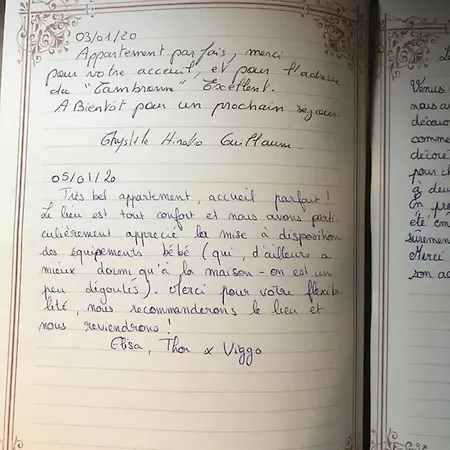 03/01/20
Appartement parfais, merci
pour votre acceuil, et pour l'adresse
du "Cambronne" Excellent.
A Bientôt pour un prochain sejour
Guillaume.
05/01/20
Très bel appartement, accueil parfait !
Le lieu est tout confort et nous avons parti-
culièrement apprécié la mise à disposition
des équipements bébé (qui, d'ailleurs a
mieux dormi qu'à la maison - on est un
peu dégoutés). Merci pour votre flexibi-
lité, nous recommanderons le lieu et
nous reviendrons !
Elisa, Thor & Viggo
Venus
nous av
décou
comme
décoré
pour ch
à deu
En pro
été em
sûremen
Merci
son ac